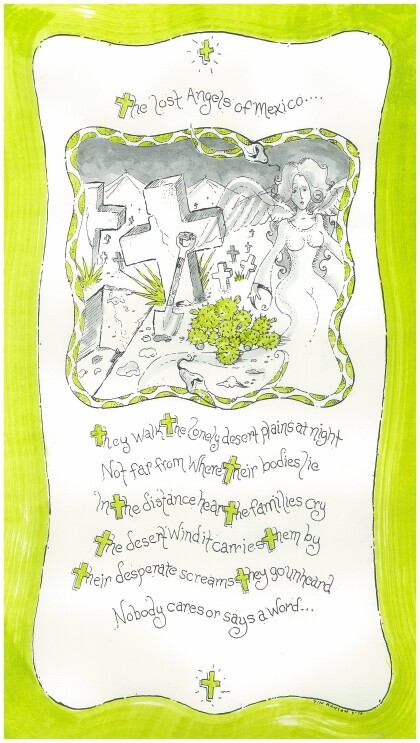 The Lost Angels of Mexico....
They walk the lonely desert plains at night
Not far from Where their bodies lie
In the distance hear the families cry
The desert Wind it carries them by
Their desperate screams they go unheard
Nobody cares or says a word...